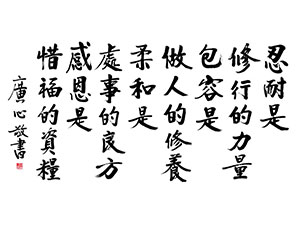 忍耐是
修行的力量
包容是
做人的修養
柔和是
處事的良方
感恩是
惜福的資糧
廣心敬書